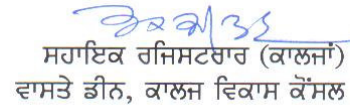 ਸਹਾਇਕ ਰਜਿਸਟਰਾਰ (ਕਾਲਜਾਂ)
ਵਾਸਤੇ ਡੀਨ, ਕਾਲਜ ਵਿਕਾਸ ਕੌਂਸਲ